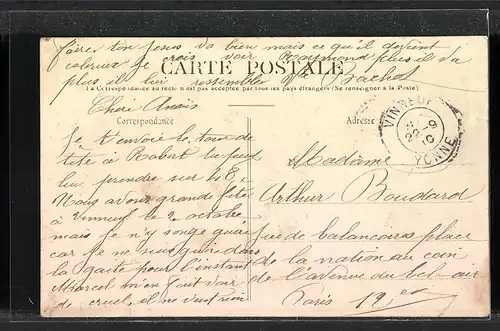 faire ton Jesus va bien mais ce qu'il devient
colereux je crois voir Raymond plus il va
plus il lui ressemble
CARTE POSTALE
La Correspondance au recto n'est pas acceptée par tous les pays étrangers (Se renseigner à la Poste)
Correspondance
Adresse
VINNEUF
YONNE
Cheri Anaïs
Je t'envoie le tour de
tête à Robert
lui prendre sur 48,
Nous avons grande fête
à Vinneuf le 2 octobre
mais je n'y songe guère
car je ne suis guère dans
la gaité pour l'instant
Marcel m'en fait voir
de cruel, il ne veut rien
Madame
Arthur Boudard
de balancoires place
de la nation au coin
de l'avenue du bel air
Paris 12